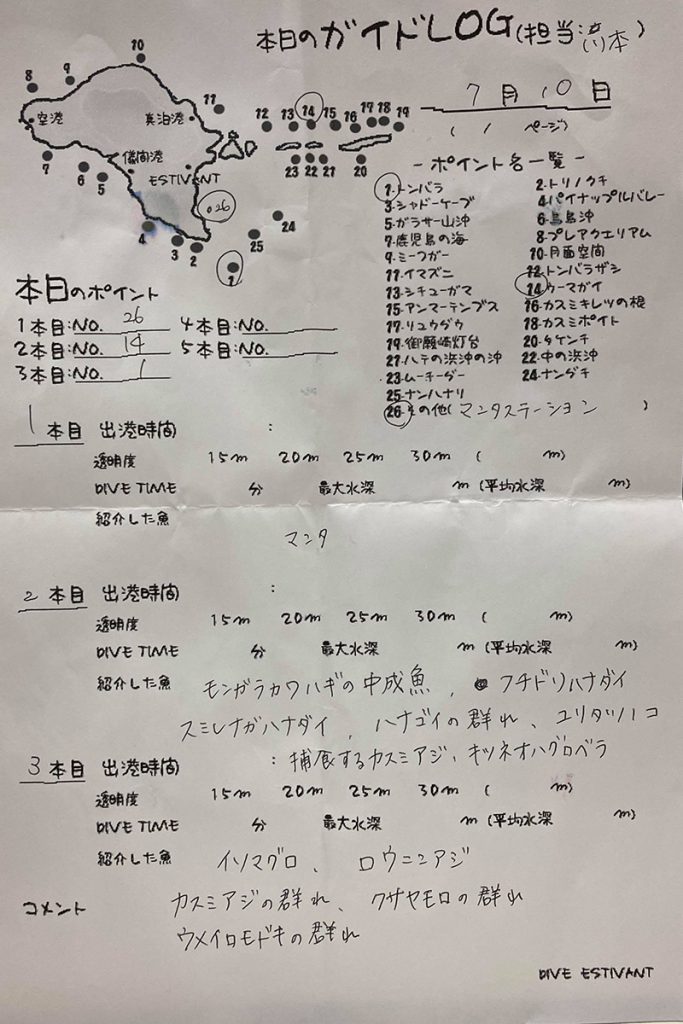 本日のガイドLOG(担当 流本)
7月10日
( 1 ページ)
10
9
8
空港
真泊港
11
12 13 14 15 16 17 18 19
23 22 21 20
儀間港
ESTIVANT
7
6
5
○26
4
3
2
24
25
1
-ポイント名一覧-
1.トンバラ 2.トリノクチ
3.シャドーケーブ 4.パイナップルバレー
5.ガラサー山沖 6.鳥島沖
7.鹿児島の海 8.プレアクエリアム
9.ミーフガー 10.月面空間
11.イマズニ 12.トンバラザシ
13.シチューガマ 14.ウーマガイ
15.アンマーテンプス 16.カスミキレツの根
17.リュウダウ 18.カスミポイト
19.御願崎灯台 20.タケンチ
21.ハテの浜沖の沖 22.中の浜沖
23.ムーチーダー 24.ナンダチ
25.ナンハナリ
26.その他(マンタステーション )
本日のポイント
1本目:NO. 26 4本目:NO.
2本目:NO. 14 5本目:NO.
3本目:NO. 1
1本目 出港時間 :
透明度 15m 20m 25m 30m ( m)
DIVE TIME 分 最大水深 m (平均水深 m)
紹介した魚
マンタ
2本目 出港時間 :
透明度 15m 20m 25m 30m ( m)
DIVE TIME 分 最大水深 m (平均水深 m)
紹介した魚 モンガラカワハギの中成魚, フチドリハナダイ
スミレナガハナダイ, ハナゴイの群れ、ユリタツノコ
3本目 出港時間 : 捕食するカスミアジ、キツネオハグロベラ
透明度 15m 20m 25m 30m ( m)
DIVE TIME 分 最大水深 m (平均水深 m)
紹介した魚 イソマグロ、ロウニンアジ
コメント カスミアジの群れ、クサヤモロの群れ
ウメイロモドキの群れ
DIVE ESTIVANT